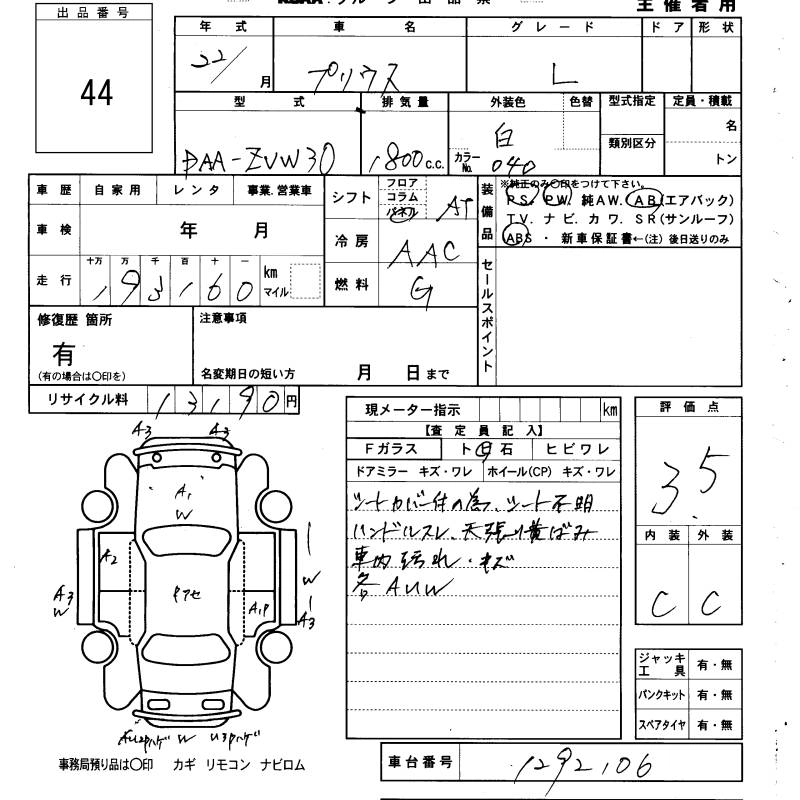 主催者用
出品番号
44
年式 車名 グレード ドア 形状
22/月 プリウス L
型式 排気量 外装色 色替 型式指定 定員・積載
類別区分
DAA-ZVW30 1800c.c. 白 カラーNo. 040 名 トン
車歴 自家用 レンタ 事業.営業車
シフト フロア コラム パネル AT
装備品 ※純正のみ〇印をつけて下さい。
PS. PW. 純AW. AB(エアバック)
TV. ナビ. カワ. SR(サンルーフ)
ABS ・ 新車保証書←(注)後日送りのみ
車検 年 月
冷房 AAC
走行 十万 万 千 百 十 一
193160 km マイル
燃料 G
セールスポイント
修復歴 箇所
有
(有の場合は〇印を)
注意事項
名変期日の短い方 月 日まで
リサイクル料 13190円
現メーター指示 km
評価点
3.5
【査定員記入】
Fガラス ト用石 ヒビワレ
ドアミラー キズ・ワレ ホイール(CP) キズ・ワレ
シートカバー付の為、シート不明
ハンドルスレ、天張り黄ばみ
車内汚れ・キズ
各AUW
内装 外装
C C
A3 A3
A1
W
A2
A3
W
P7セ
A1P
W
A3
W
ジャッキ工具 有・無
パンクキット 有・無
スペアタイヤ 有・無
事務局預り品は〇印 カギ リモコン ナビロム
車台番号 1292106